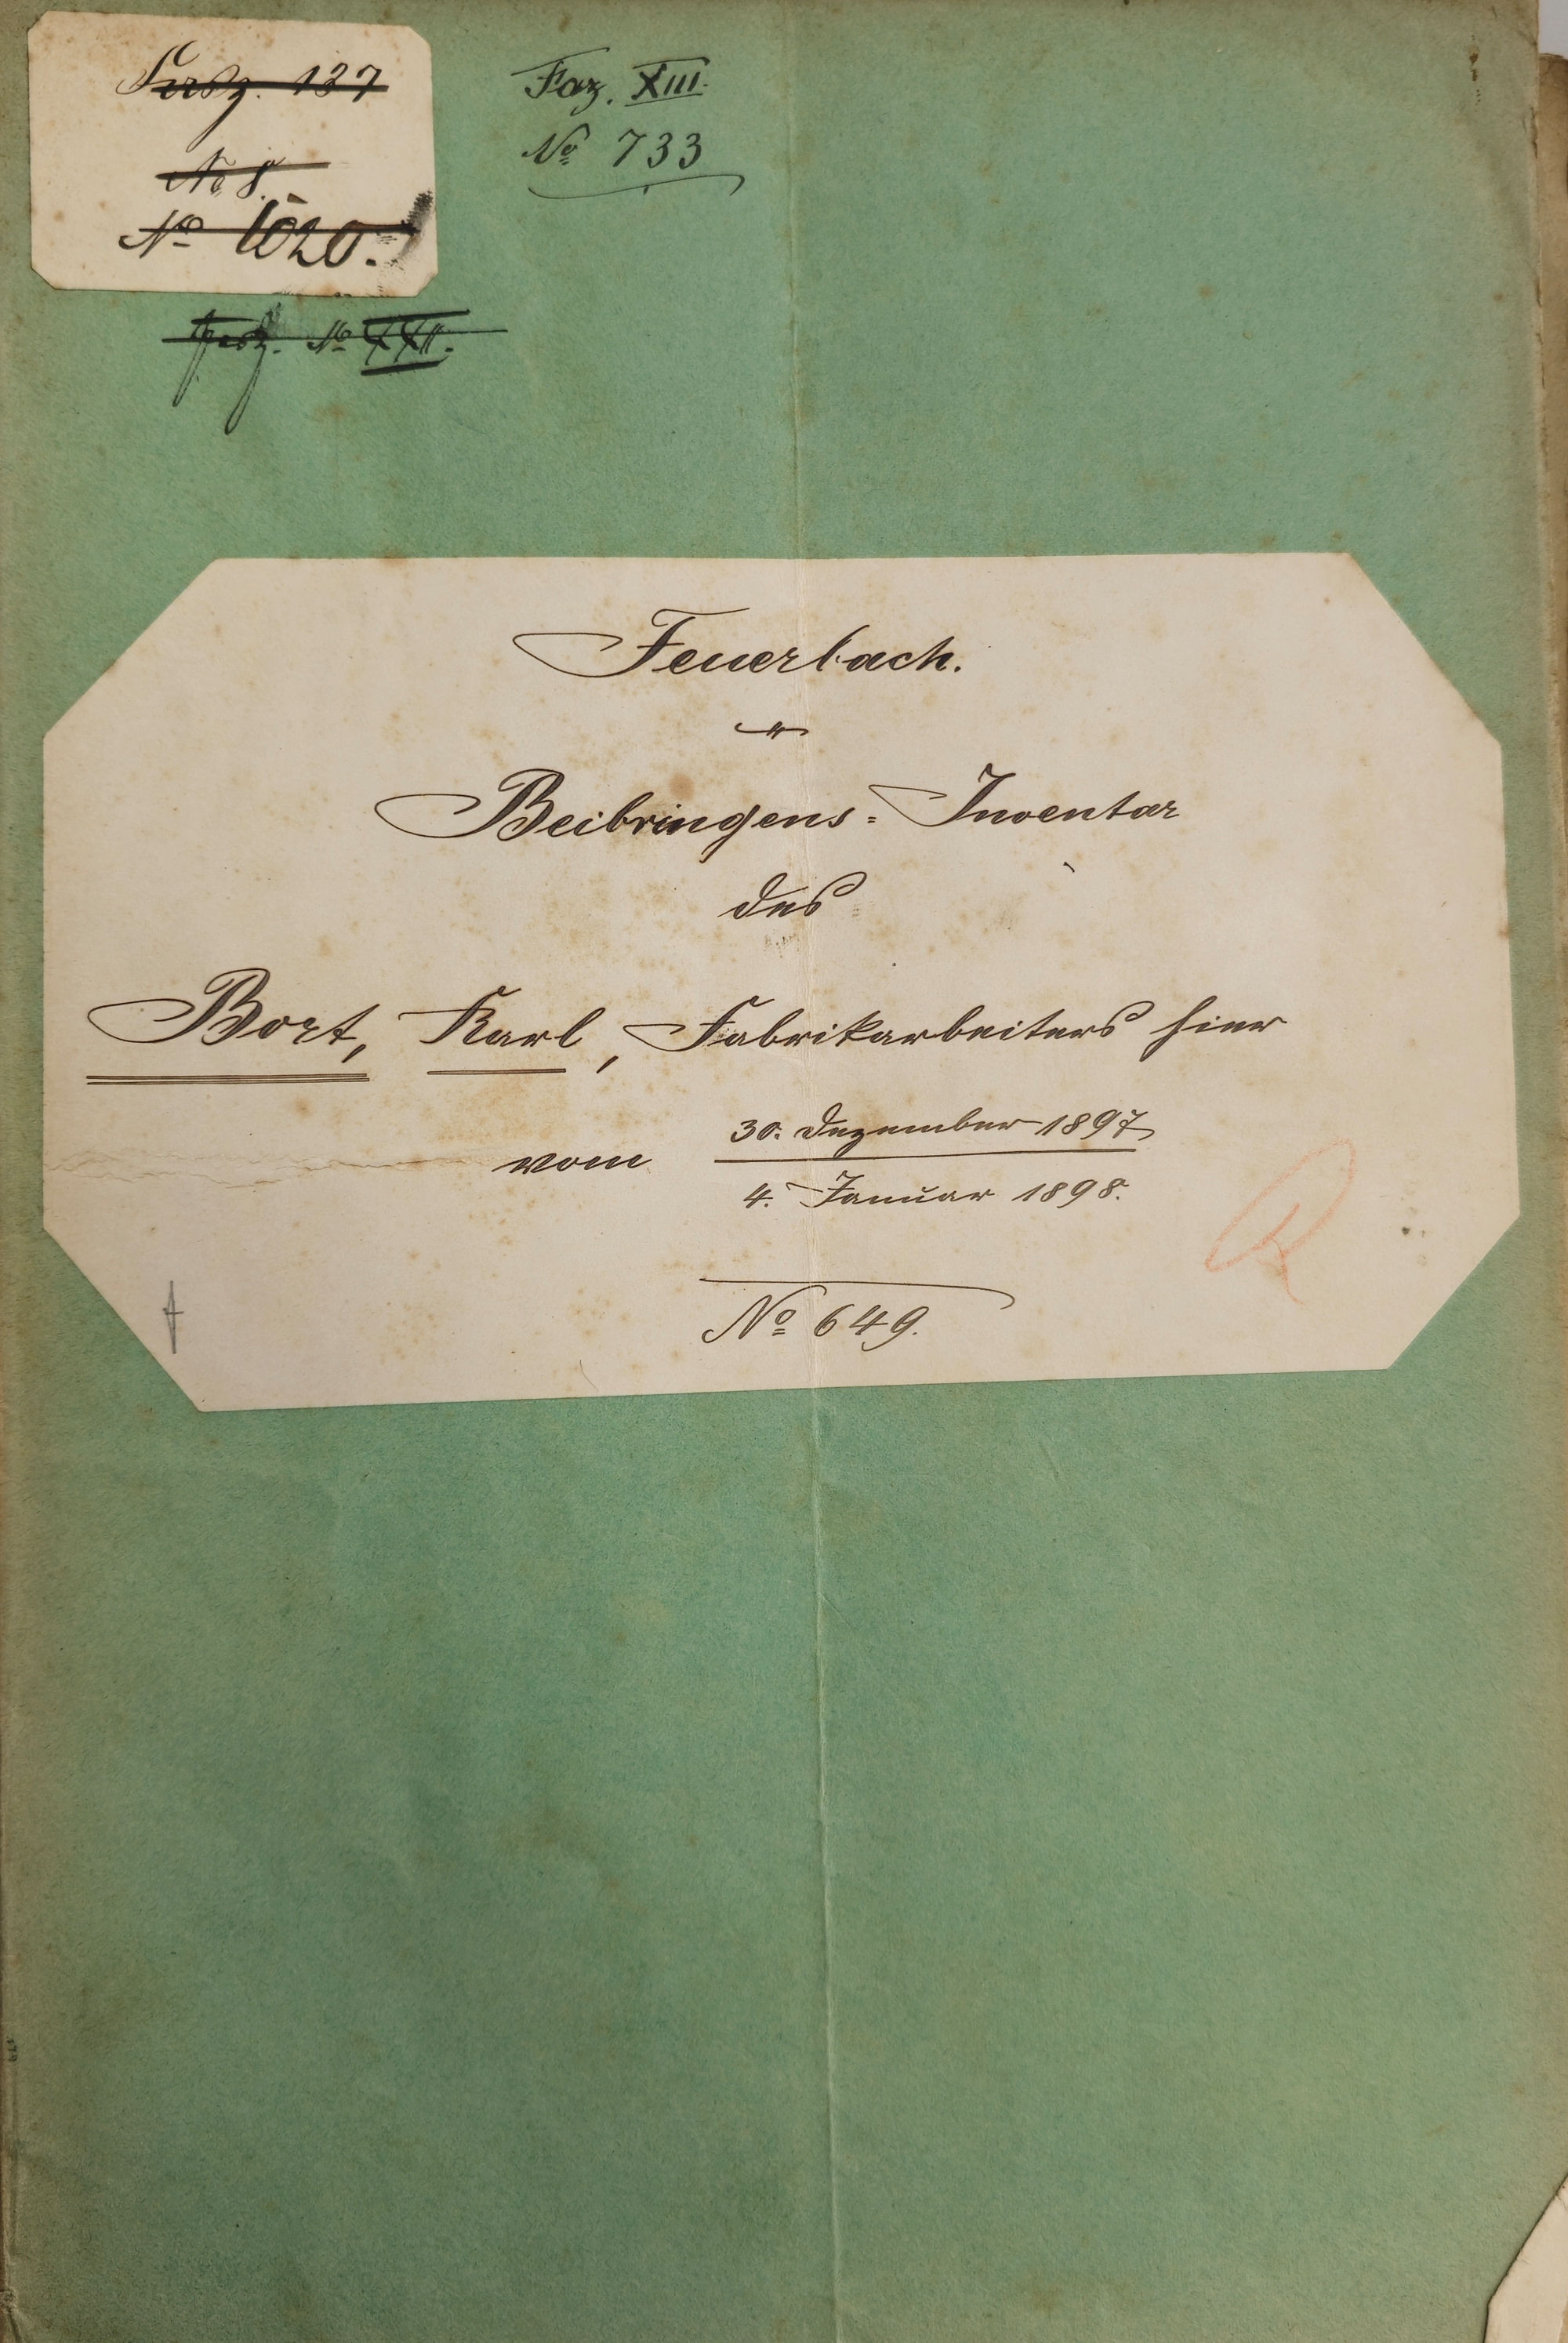 Fasz. 137
No 8.
No 1020.
Fasz. No XXII.
Faz. XIII.
No 733
Feuerbach.
Beibringens-Inventar
des
Bort, Karl, Fabrikarbeiters hier
vom 30. Dezember 1897
4. Januar 1898.
No 649.